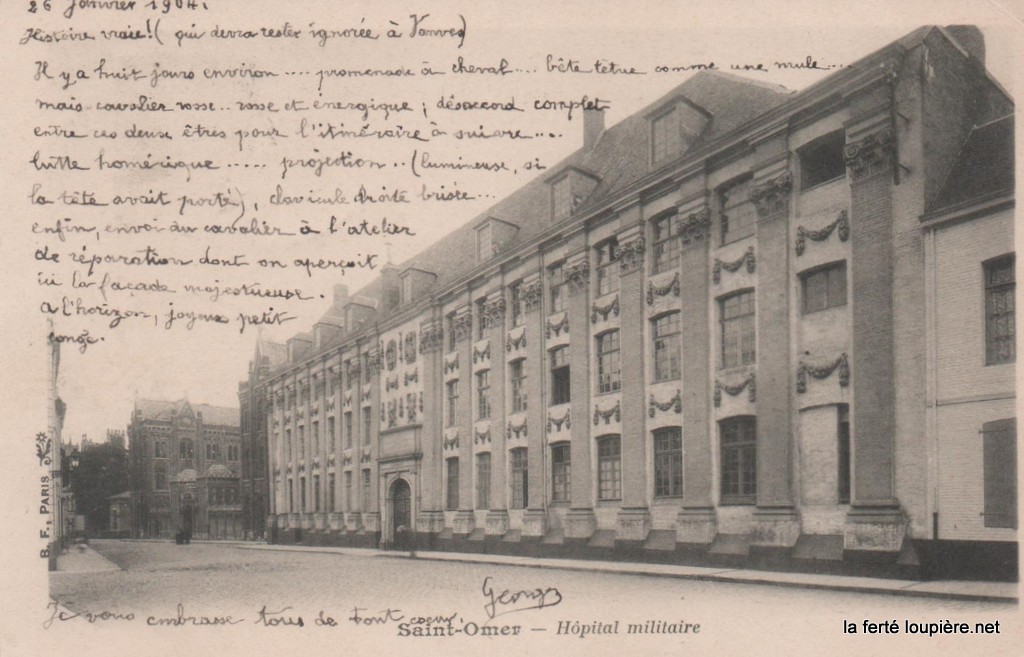 26 Janvier 1904.
Histoire vraie! (qui devra rester ignorée à Vanves)
Il y a huit jours environ .... promenade à cheval... bête têtue comme une mule....
mais cavalier rosse.. rosse et énergique ; désaccord complet
entre ces deux êtres pour l'itinéraire à suivre....
lutte homérique ..... projection.. (lumineuse, si
la tête avait porté), clavicule droite brisée...
enfin, envoi du cavalier à l'atelier
de réparation dont on aperçoit
ici la façade majestueuse.
A l'horizon, joyeux petit
congé.
B. F., PARIS
Georges
Je vous embrasse tous de tout coeur.
Saint-Omer – Hôpital militaire
la ferté loupière.net